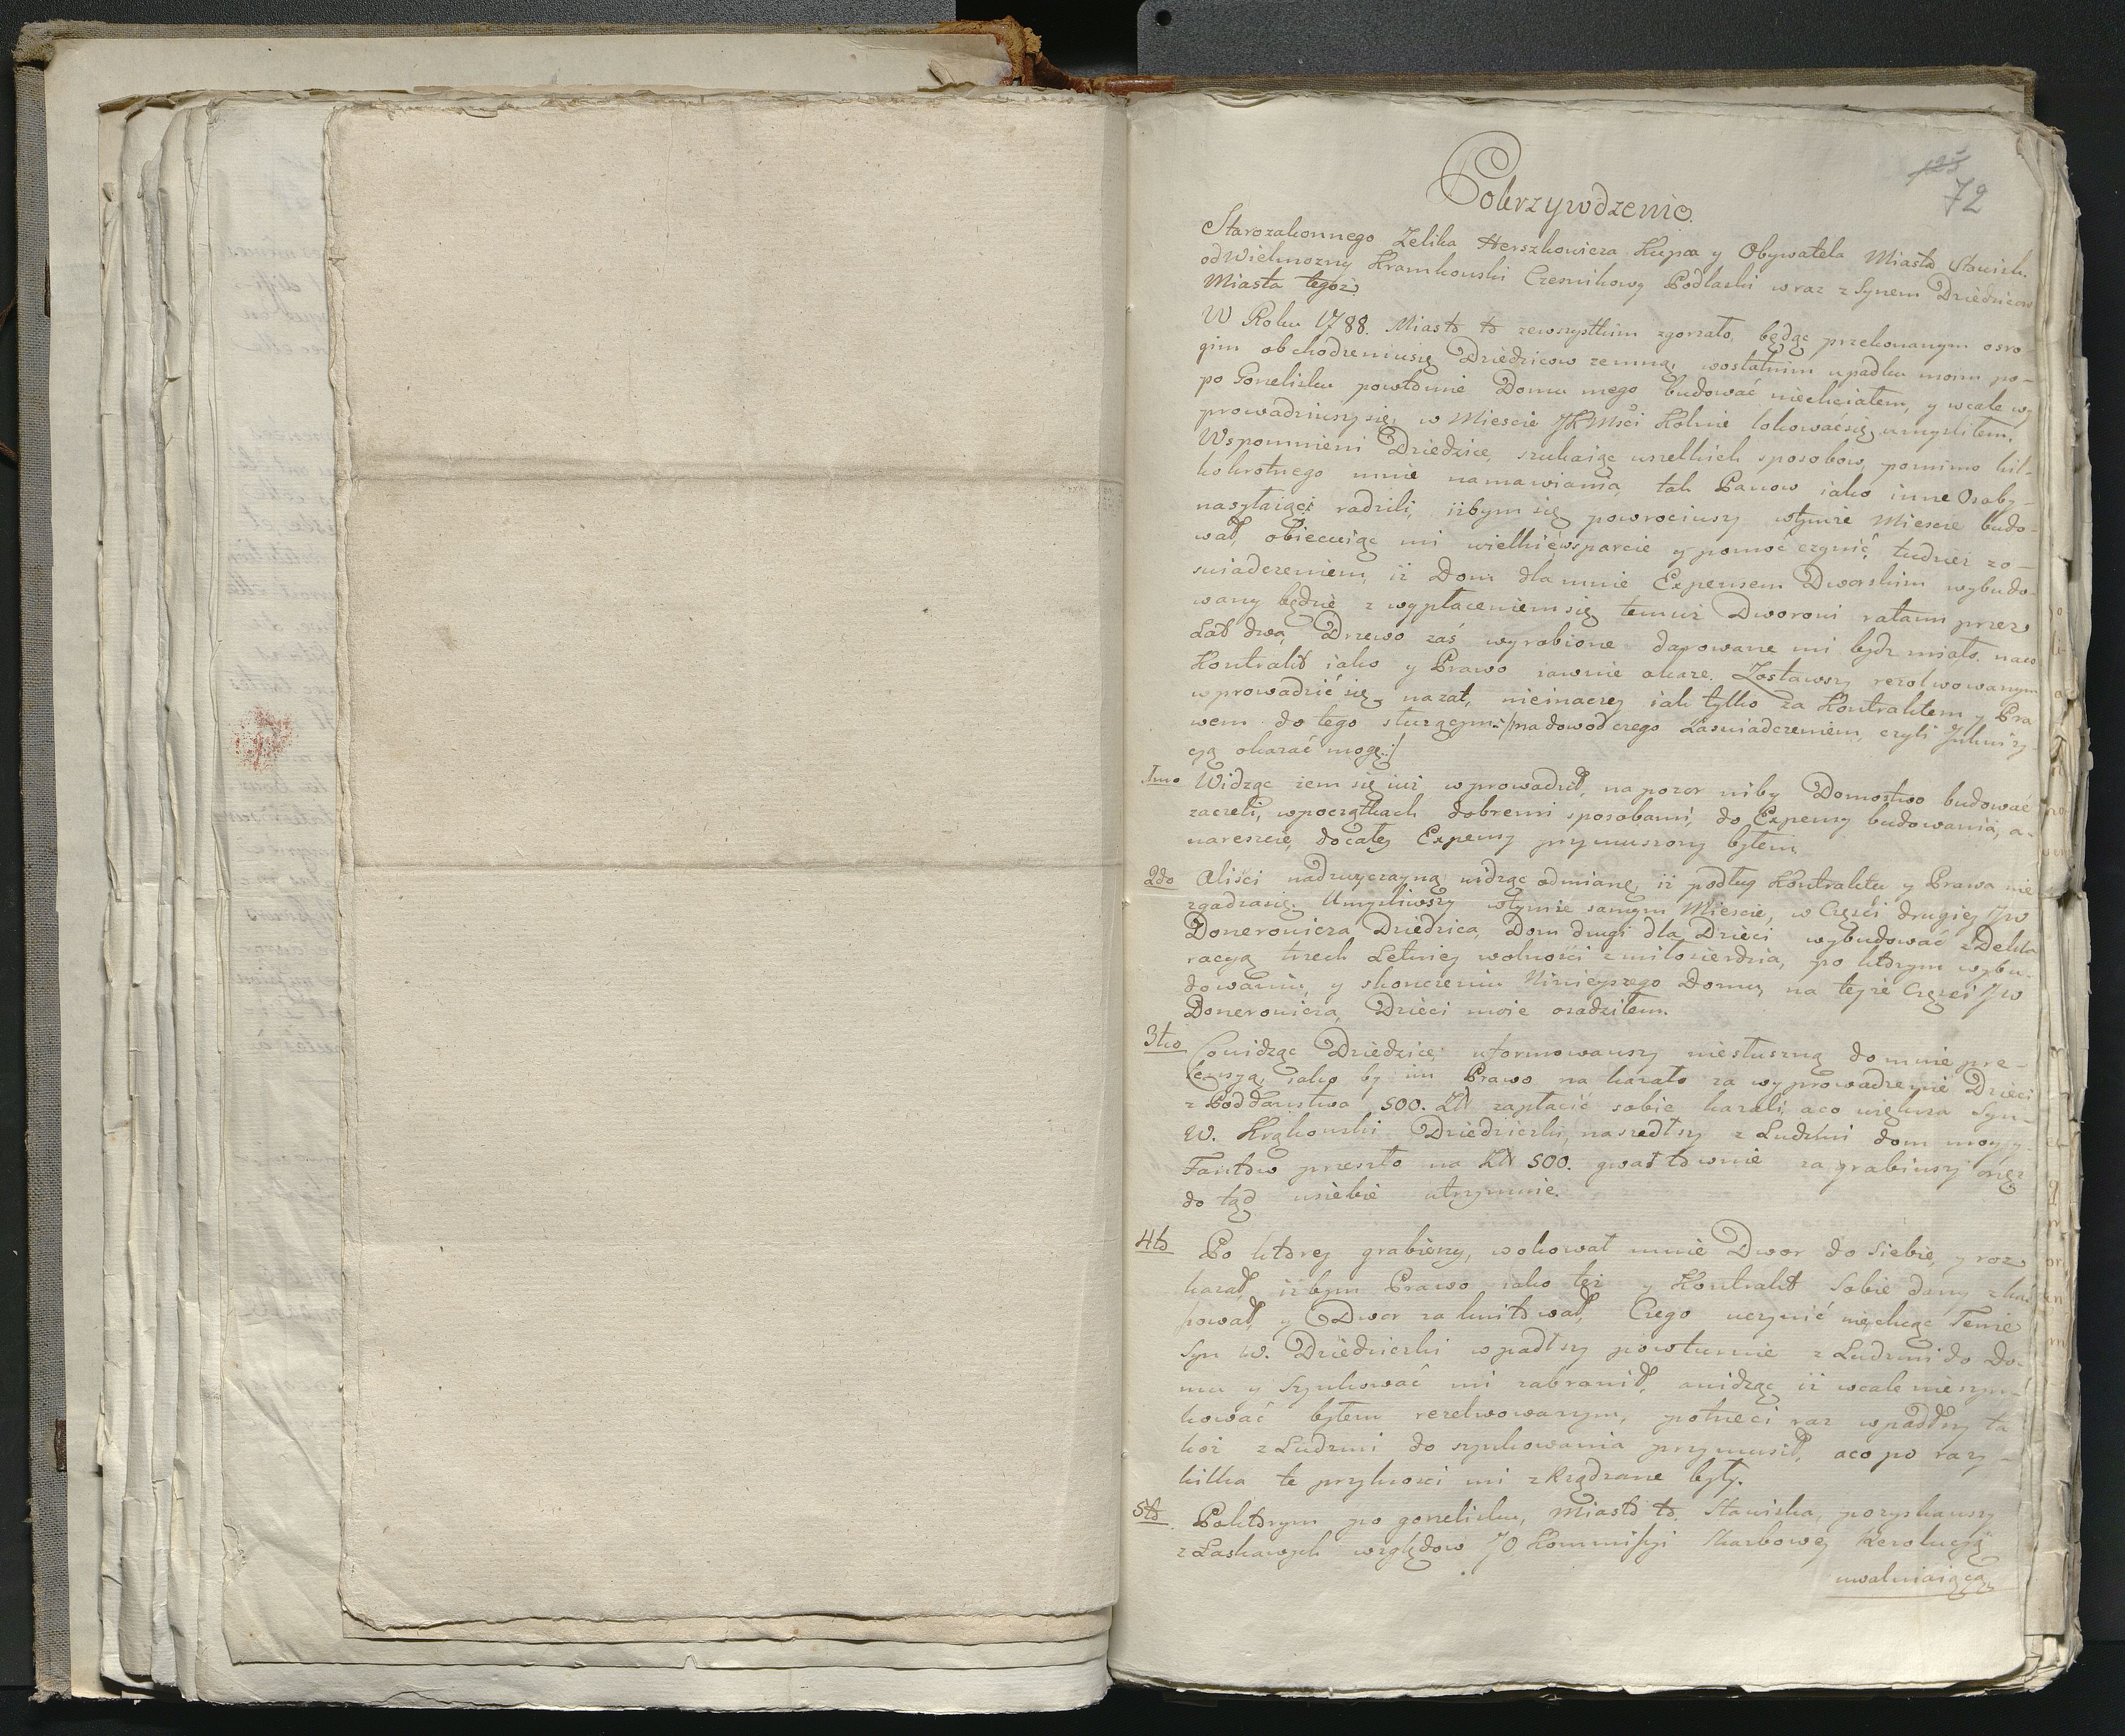 125
72
Pokrzywdzenie
Starozakonnego Zelika Herszkowicza Kupca y Obywatela Miasta Stawisk.
od Wielmozny Kramkowski Czesnikowy Podlaski wraz z Synem Dziedzicow
Miasta tegoż
W Roku 1788. Miasto to zewszystkim zgorzało, będąc przekonanym osro
gim obchodzeniusię Dziedzicow zemną, wostatnim upadku moim po-
po Gorzelisku powtornie Domu mego budować niechciałem, y wcale wy
prowadziwszy się, w Miescie JKMści Kolnie lokowaćsię umysliłem.
Wspomnieni Dziedzice, szukaiąc wszelkich sposobow, pomimo kil-
kokrotnego mnie namawiania, tak Panow iako inne Osoby-
nasyłaiąc radzili, iżbym się powrociwszy wtymże Miescie budo-
wał, obiecuiąc mi wielkie wsparcie y pomoc czynić, tudzież zo-
swiadczeniem, iż Dom dla mnie Expensem Dworskim wybudo-
wany będzie z wypłaceniem się temuż Dworowi ratami przez
Lat dwa, Drzewo zaś wyrobione darowane mi bydz miało. naco
Kontrakt iako y Prawo iawnie okaże. Zostawszy rezolwowanym
wprowadzić się nazat, nieinaczey iak tylko za Kontraktem y Pra
wem do tego służącym :/ na dowod czego Zaswiadczeniem, czyli
cyą okazać mogę :/
1mo Widząc żem się iuż wprowadził, na pozor niby Domostwo budować
zaczeli, wpoczątkach dobremi sposobami, do Expensy budowania, a-
nareszcie, do całey Expensy przymuszony byłem.
2do Aliści nadzwyczayną widząc odmianę, iż podług Kontraktu y Prawa nie
zgadzasię. Umysliwszy wtymże samym Miescie, w Częsći drugiey JW
Donerowicza Dziedzica, Dom drugi dla Dzieci wybudować z Dekla
racyą trzech Letniey wolności z miłosierdzia, po ktorym wybu-
dowaniu y skonczeniu Ninieyszego Domu, na teyże Częsći JW
Donerowicza, Dzieci moie osadziłem.
3tio Cowidząc Dziedzice, uformowawszy niesłuszną do mnie pre-
tensyą, iako by im Prawo na kazało za wyprowadzenie Dzieci
z Poddaństwa 500. Zł zapłacić sobie kazali, aco większa Syn-
W. Krąkowski Dziedziczki, naszedłszy z Ludźmi dom moy y
Fantow przeszło na Zł 500. gwałtownie zagrabiwszy oneż
do tąd usiebie utrzymuie.
4to Po ktorey grabieży, wokował mnie Dwor do siebie, y roz
kazał, iżbym Prawo iako też y Kontrakt Sobie dany skas
sował, y Dwor zakwitował, Czego uczynić niechcąc Tenże
Syn W. Dziedziczki wpadłszy powturnie z Ludzmi do Do-
mu y Szynkować mi zabronił, awidząc iż wcale nieszyn-
kować byłem rezolwowanym, potrzeci raz wpadłszy ta
koż z Ludzmi do szynkowania przymusił, aco po razy-
kilka te przykrości mi zrządzane były.
5to Poktorym po gorzelisku, Miasto to Stawiska, pozyskawszy
z Łaskawych względow JO Kommissyi Skarbowey Rezolucyą
uwalniaiącą